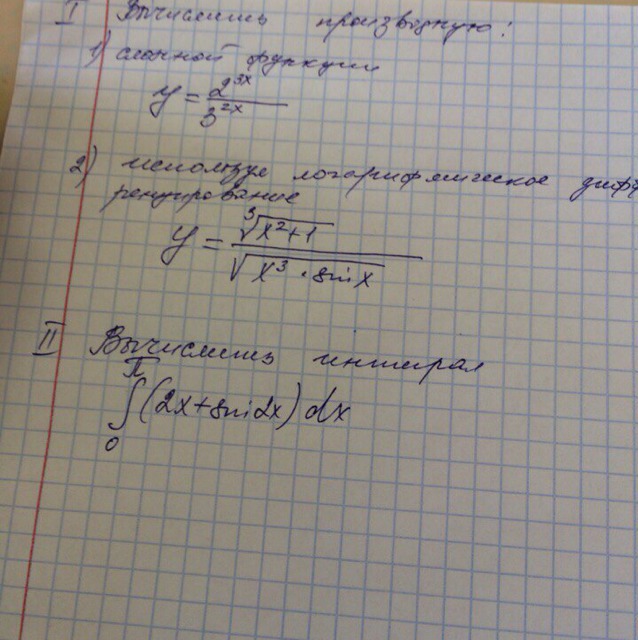 I Вычислить производную:
1) сложной функции
y = 2^{3x} / 3^{2x}
2) используя логарифмическое дифф
ренцирование
y = ∛(x²+1) / √(x³ · sin x)
II Вычислить интеграл
∫₀^π (2x + sin 2x) dx